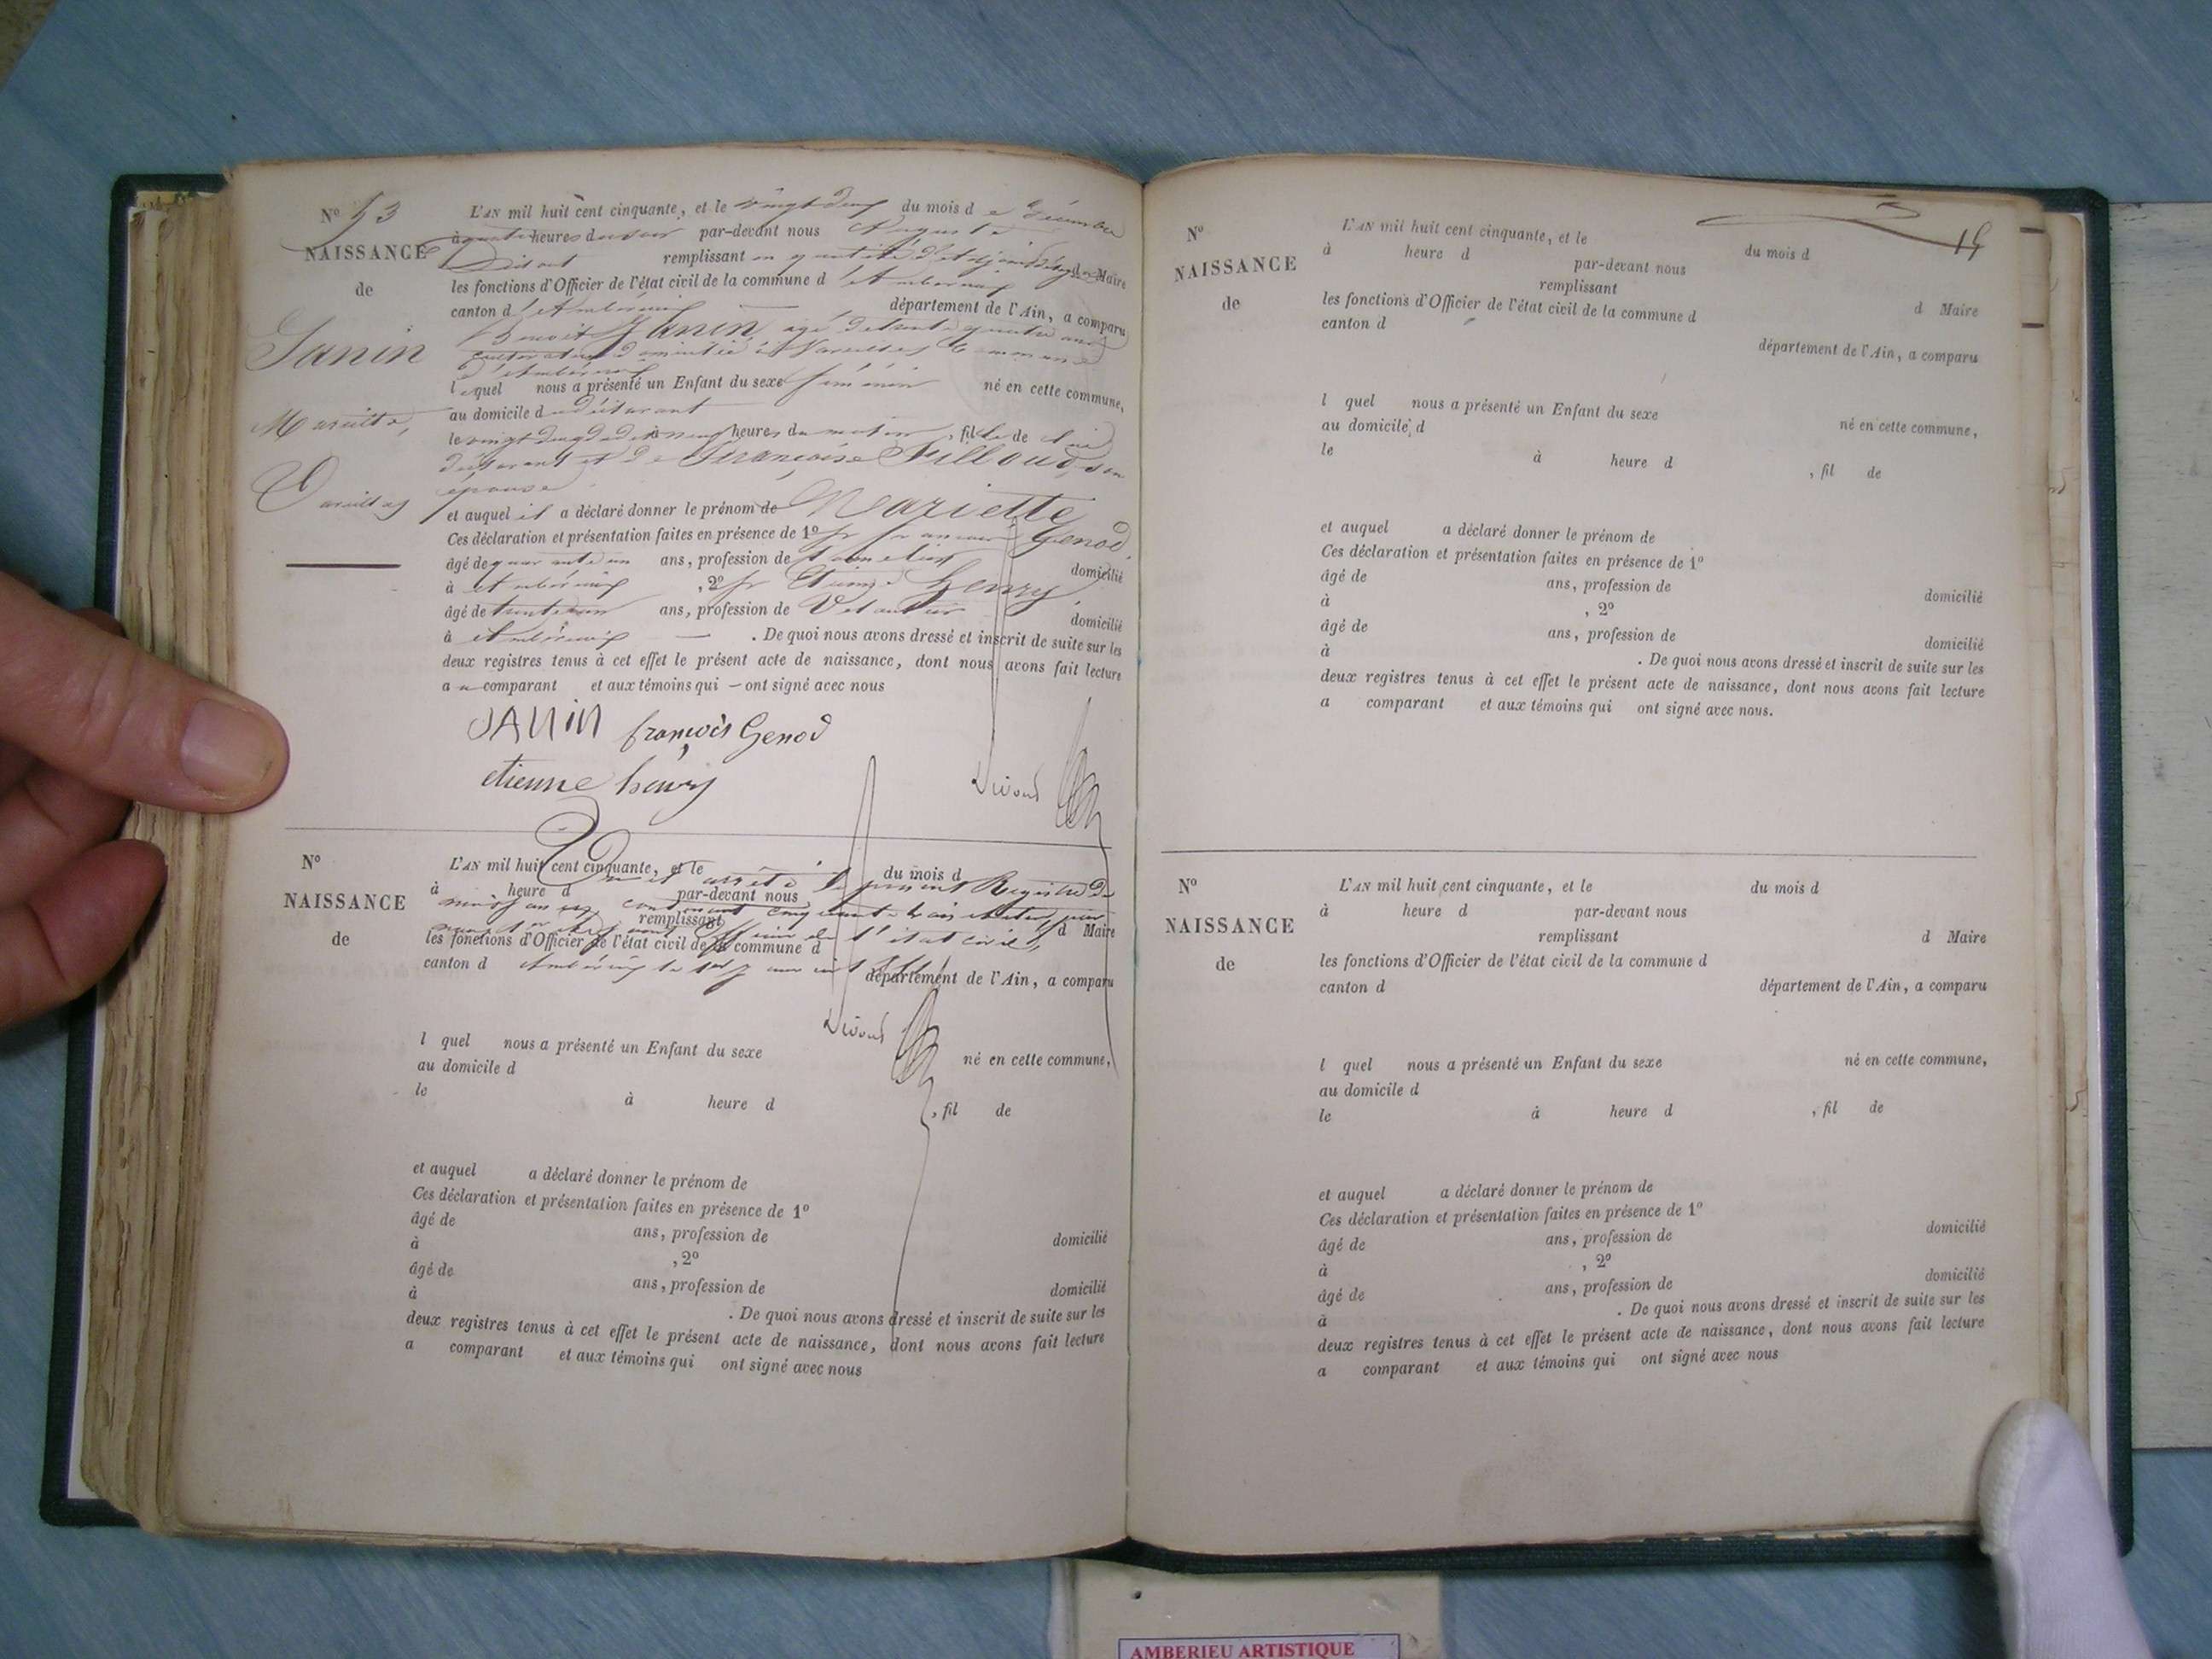 N° 53
NAISSANCE
de
Janin
Mariette,
Vareilles
L'AN mil huit cent cinquante, et le vingt deux du mois de Décembre
à quatre heures du soir par-devant nous Auguste
remplissant en qualité d'adjoint d Maire
les fonctions d'Officier de l'état civil de la commune d'Ambérieux
canton d'Ambérieux — département de l'Ain, a comparu
Benoit Janin, agé de trente quatre ans
cultivateur domicilié à Vareilles Commune
d'Ambérieux
lequel nous a présenté un Enfant du sexe féminin né en cette commune,
au domicile du déclarant
le vingt deux à neuf heures du matin, fille de lui
déclarant et de Françoise Filloud, son
épouse
et auquel il a déclaré donner le prénom de Mariette
Ces déclaration et présentation faites en présence de 1° sr françois Genod,
âgé de quarante un ans, profession de domicilié
à Ambérieux, 2° sr Etienne Henry,
âgé de trente ans, profession de domicilié
à Ambérieux — . De quoi nous avons dressé et inscrit de suite sur les
deux registres tenus à cet effet le présent acte de naissance, dont nous avons fait lecture
au comparant et aux témoins qui — ont signé avec nous
JANIN françois Genod
etienne henry
N°
NAISSANCE
de
L'AN mil huit cent cinquante, et le du mois d
Clos et arrêté le présent Registre de
à heure d par-devant nous
naissances contenant cinquante trois actes, par
remplissant d Maire
nous officier de l'état civil,
les fonctions d'Officier de l'état civil de la commune d
canton d département de l'Ain, a comparu
Ambérieux le 1er janvier 1851
l quel nous a présenté un Enfant du sexe né en cette commune,
au domicile d
le à heure d , fil de
et auquel a déclaré donner le prénom de
Ces déclaration et présentation faites en présence de 1°
âgé de ans, profession de domicilié
à , 2°
âgé de ans, profession de domicilié
à . De quoi nous avons dressé et inscrit de suite sur les
deux registres tenus à cet effet le présent acte de naissance, dont nous avons fait lecture
a comparant et aux témoins qui ont signé avec nous
N°
NAISSANCE
de
L'AN mil huit cent cinquante, et le du mois d
à heure d par-devant nous
remplissant d Maire
les fonctions d'Officier de l'état civil de la commune d
canton d département de l'Ain, a comparu
l quel nous a présenté un Enfant du sexe né en cette commune,
au domicile d
le à heure d , fil de
et auquel a déclaré donner le prénom de
Ces déclaration et présentation faites en présence de 1°
âgé de ans, profession de domicilié
à , 2°
âgé de ans, profession de domicilié
à . De quoi nous avons dressé et inscrit de suite sur les
deux registres tenus à cet effet le présent acte de naissance, dont nous avons fait lecture
a comparant et aux témoins qui ont signé avec nous.
N°
NAISSANCE
de
L'AN mil huit cent cinquante, et le du mois d
à heure d par-devant nous
remplissant d Maire
les fonctions d'Officier de l'état civil de la commune d
canton d département de l'Ain, a comparu
l quel nous a présenté un Enfant du sexe né en cette commune,
au domicile d
le à heure d , fil de
et auquel a déclaré donner le prénom de
Ces déclaration et présentation faites en présence de 1°
âgé de ans, profession de domicilié
à , 2°
âgé de ans, profession de domicilié
à . De quoi nous avons dressé et inscrit de suite sur les
deux registres tenus à cet effet le présent acte de naissance, dont nous avons fait lecture
a comparant et aux témoins qui ont signé avec nous
AMBERIEU ARTISTIQUE